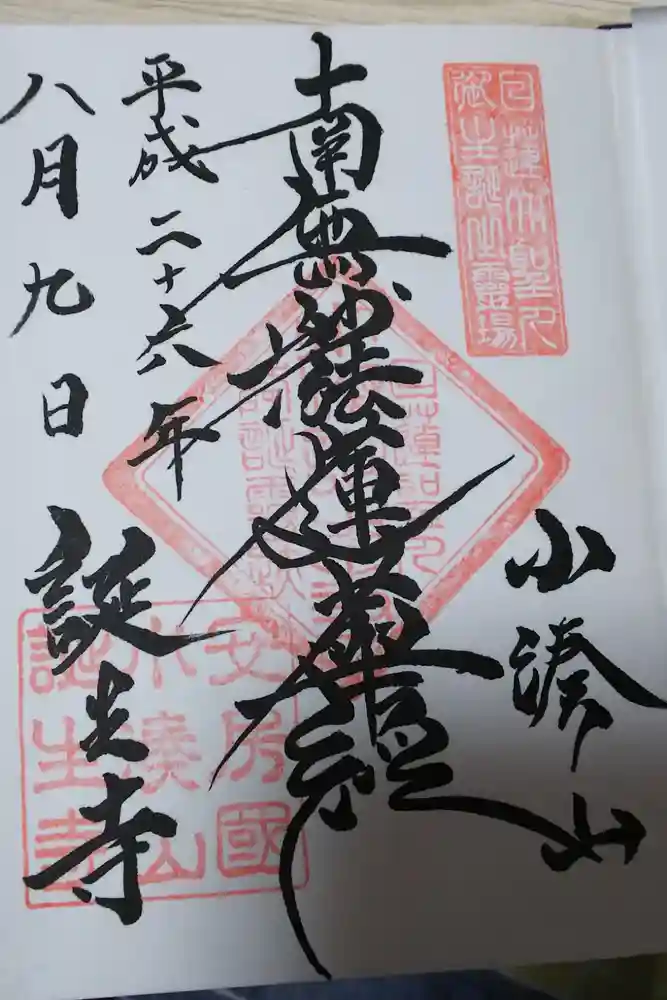 日蓮大聖人
御生誕之霊場
小湊山
南無妙法蓮華経
平成二十六年
八月九日
誕生寺
安房國
小湊山
誕生寺